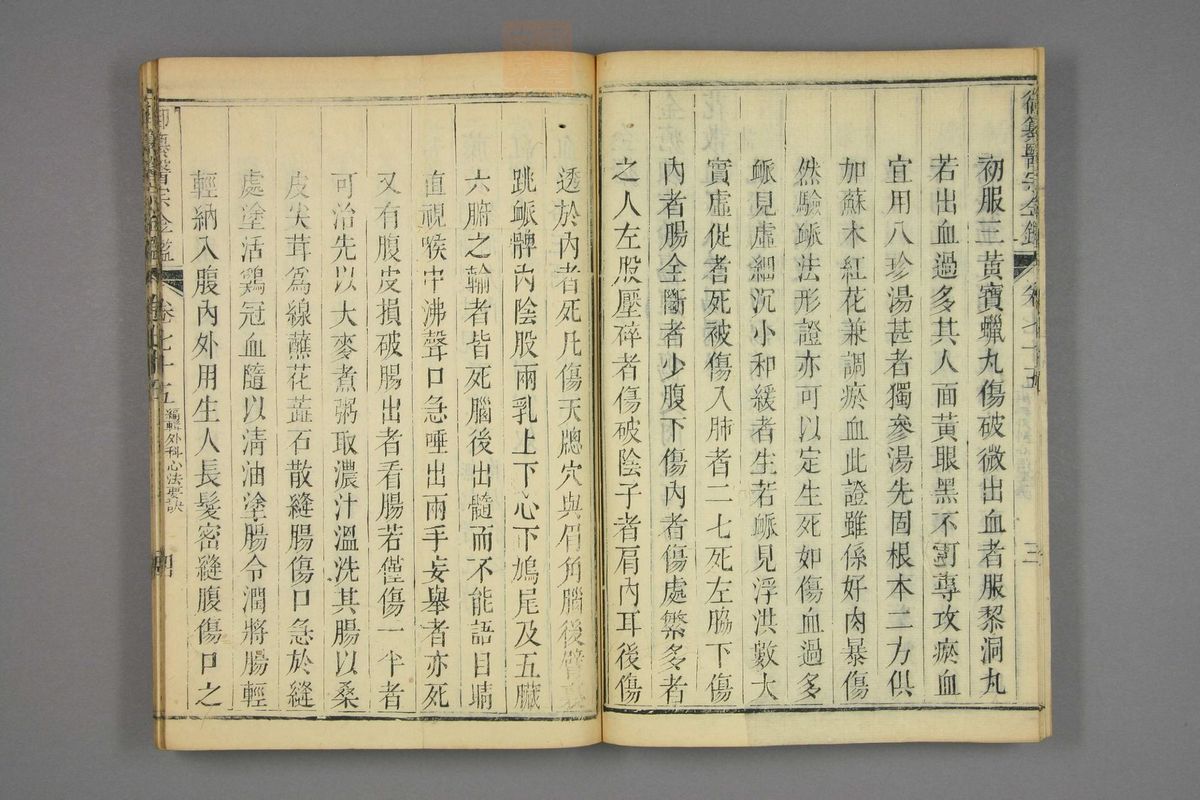 御纂醫宗金鑑 卷七十五 三
初服三黃寶蠟丸傷破微出血者服黎洞丸
若出血過多其人面黃眼黑不可專攻瘀血
宜用八珍湯甚者獨參湯先固根本二方俱
加蘇木紅花兼調瘀血此證雖係好肉暴傷
然驗脈法形證亦可以定生死如傷血過多
脈見虛細沉小和緩者生若脈見浮洪數大
實虛促者死被傷入肺者二七死左脇下傷
內者腸全斷者少腹下傷內者傷處繁多者
之人左股壓碎者傷破陰子者肩內耳後傷
透於內者死凡傷天牕穴與眉角腦後臂裏
跳脈髀內陰股兩乳上下心下鳩尾及五臟
六腑之輸者皆死腦後出髓而不能語目睛
直視喉中沸聲口急唾出兩手妄舉者亦死
又有腹皮損破腸出者看腸若僅傷一半者
可治先以大麥煮粥取濃汁溫洗其腸以桑
皮尖茸爲線蘸花蕋石散縫腸傷口急於縫
處塗活鷄冠血隨以清油塗腸令潤將腸輕
輕納入腹內外用生人長髮密縫腹傷口之
御纂醫宗金鑑 卷七十五 編輯外科心法要訣 四